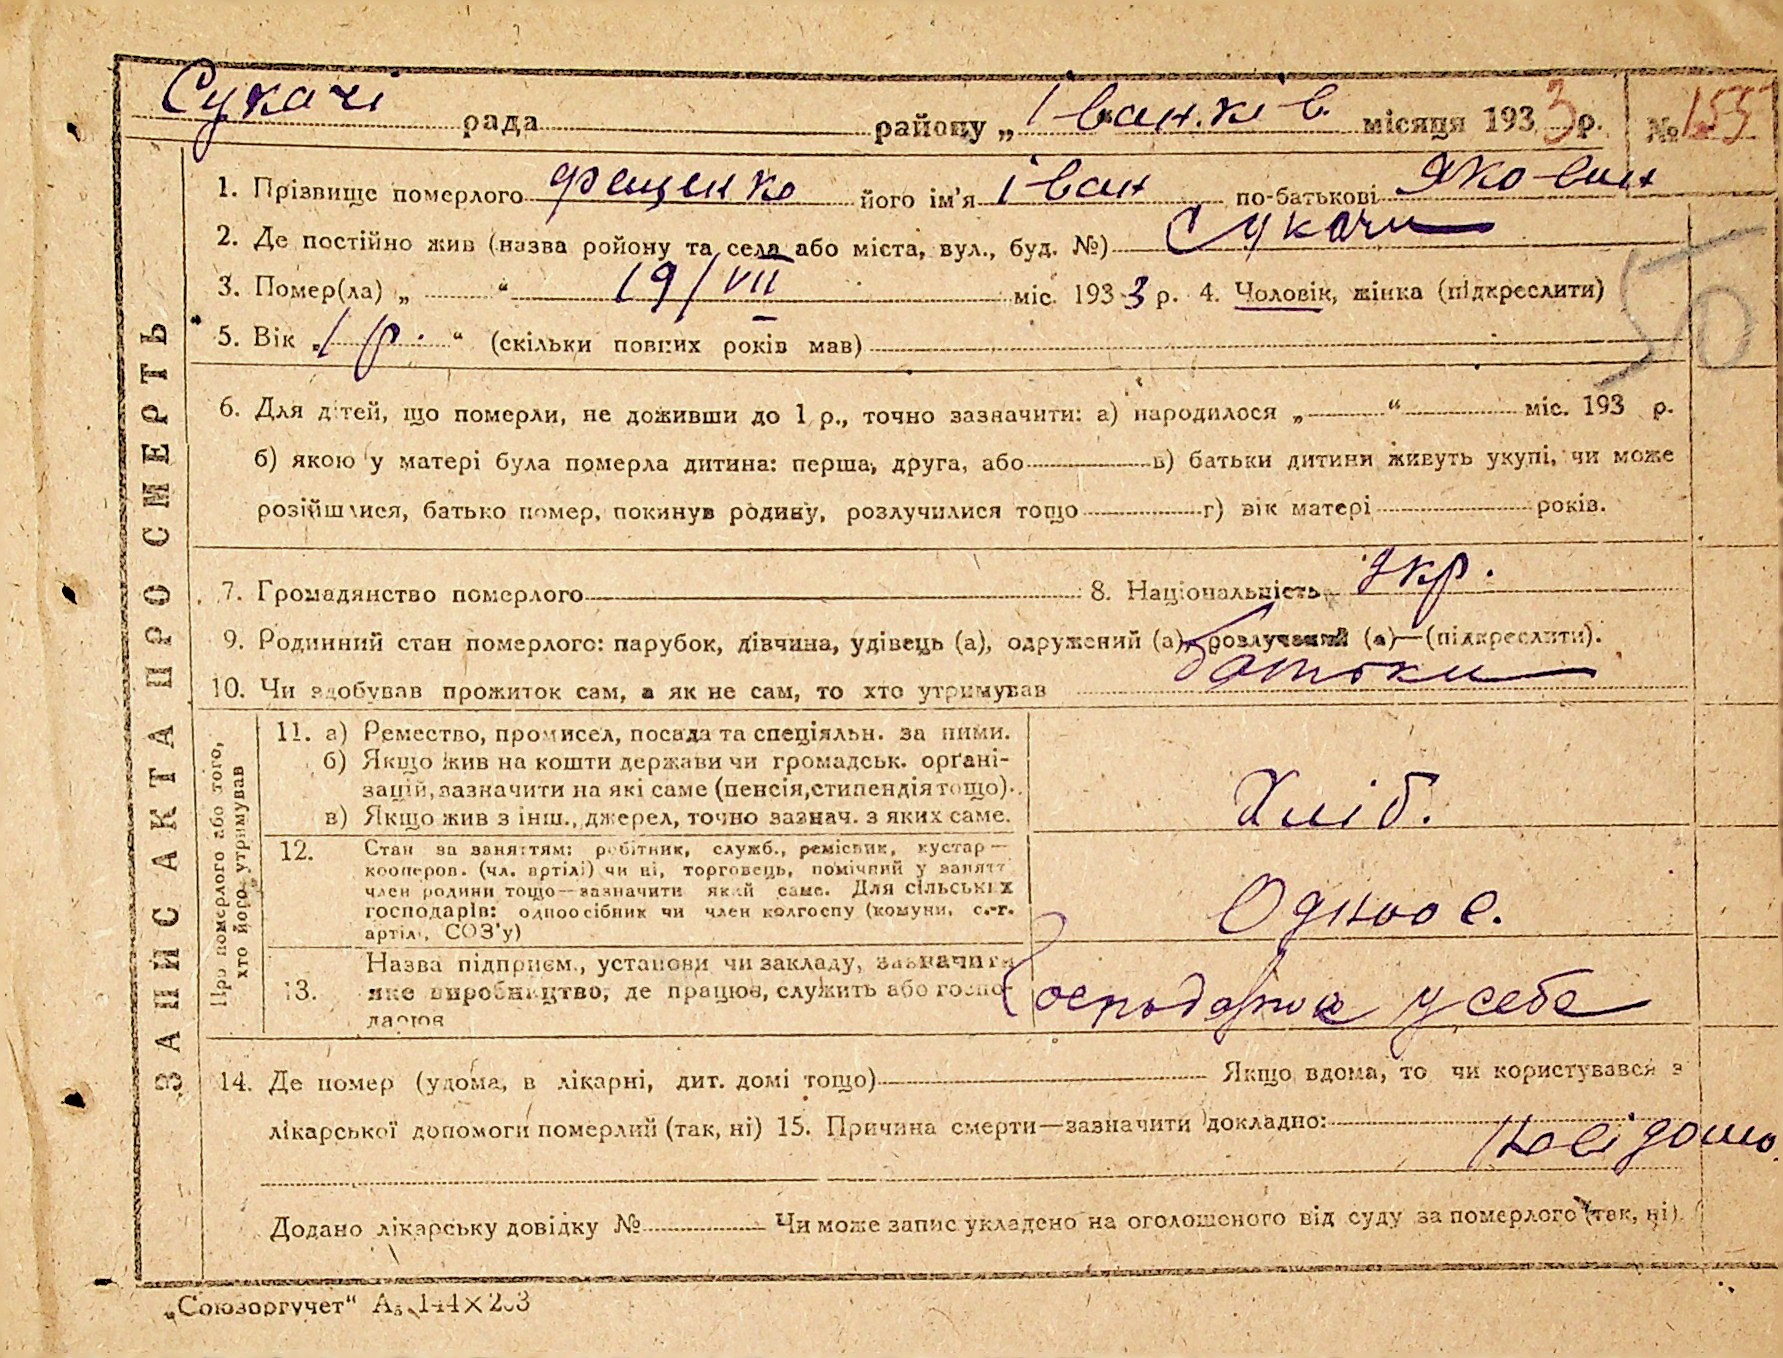 Сукачі рада району „Іванків. місяця 1933 р. № 155
1. Прізвище померлого Фещенко його ім'я Іван по-батькові Яковин
2. Де постійно жив (назва ройону та села або міста, вул., буд. №) Сукачи
3. Помер(ла) „ “ 19/VII міс. 1933 р. 4. Чоловік, жінка (підкреслити)
50
5. Вік „1 р. “ (скільки повних років мав)
6. Для дітей, що померли, не доживши до 1 р., точно зазначити: а) народилося „ “ міс. 193 р.
б) якою у матері була померла дитина: перша, друга, або в) батьки дитини живуть укупі, чи може
розійшлися, батько помер, покинув родину, розлучилися тощо г) вік матері років.
7. Громадянство померлого 8. Національність Укр.
9. Родинний стан померлого: парубок, дівчина, удівець (а), одружений (а), розлучений (а)—(підкреслити).
10. Чи здобував прожиток сам, а як не сам, то хто утримував батьки
ЗАПИС АКТА ПРО СМЕРТЬ
Про померлого або того,
хто його утримував
11. а) Ремество, промисел, посада та спеціяльн. за ними.
б) Якщо жив на кошти держави чи громадськ. орґані-
зацій, зазначити на які саме (пенсія, стипендія тощо).
в) Якщо жив з інш., джерел, точно зазнач. з яких саме.
Хліб.
12. Стан за заняттям: робітник, служб., ремісник, кустар—
кооперов. (чл. артілі) чи ні, торговець, помічний у занятт
член родини тощо—зазначити який саме. Для сільських
господарів: одноосібник чи член колгоспу (комуни, с.-г.
артілі, СОЗ'у)
Одноос.
13. Назва підприєм., установи чи закладу, зазначити
яке виробництво, де працює, служить або госпо-
дарює
Господарка у себе
14. Де помер (удома, в лікарні, дит. домі тощо) Якщо вдома, то чи користувався з
лікарської допомоги померлий (так, ні) 15. Причина смерти—зазначити докладно:
Невідомо.
Додано лікарську довідку № Чи може запис укладено на оголошеного від суду за померлого (так, ні)
„Союзоргучет“ А₅ 144×203